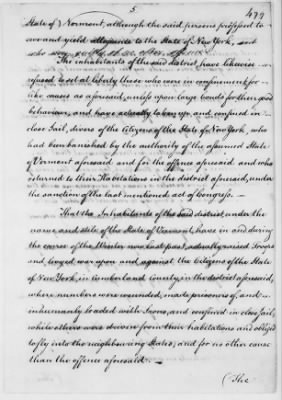 5
479
State of Vermont; although the said persons professed to
owe and yield allegiance to the State of New York, and
who
The inhabitants of the said district, have likewise
refused to set at liberty those who were in confinement for
like causes as aforesaid, unless upon large bonds for their good
behaviour, and have actually taken up and confined in
close Jail, divers of the Citizens of the State of New York, who
had been banished by the authority of the assumed State
of Vermont aforesaid and for the offence aforesaid and who
returned to their Habitations in the district aforesaid, under
the sanction of the last mentioned act of Congress. —
That the Inhabitants of the said district, under the
name and stile of the State of Vermont, have in and during
the course of the Winter now last past, actually raised Troops
and levyed war upon and against the Citizens of the State
of New York, in Cumberland County, in the district aforesaid,
where numbers were wounded, made prisoners of, and
inhumanly loaded with Irons, and confined in close Jail,
while others were driven from their habitations and obliged
to fly into the neighbouring States; and for no other cause
than the offence aforesaid. —
(The